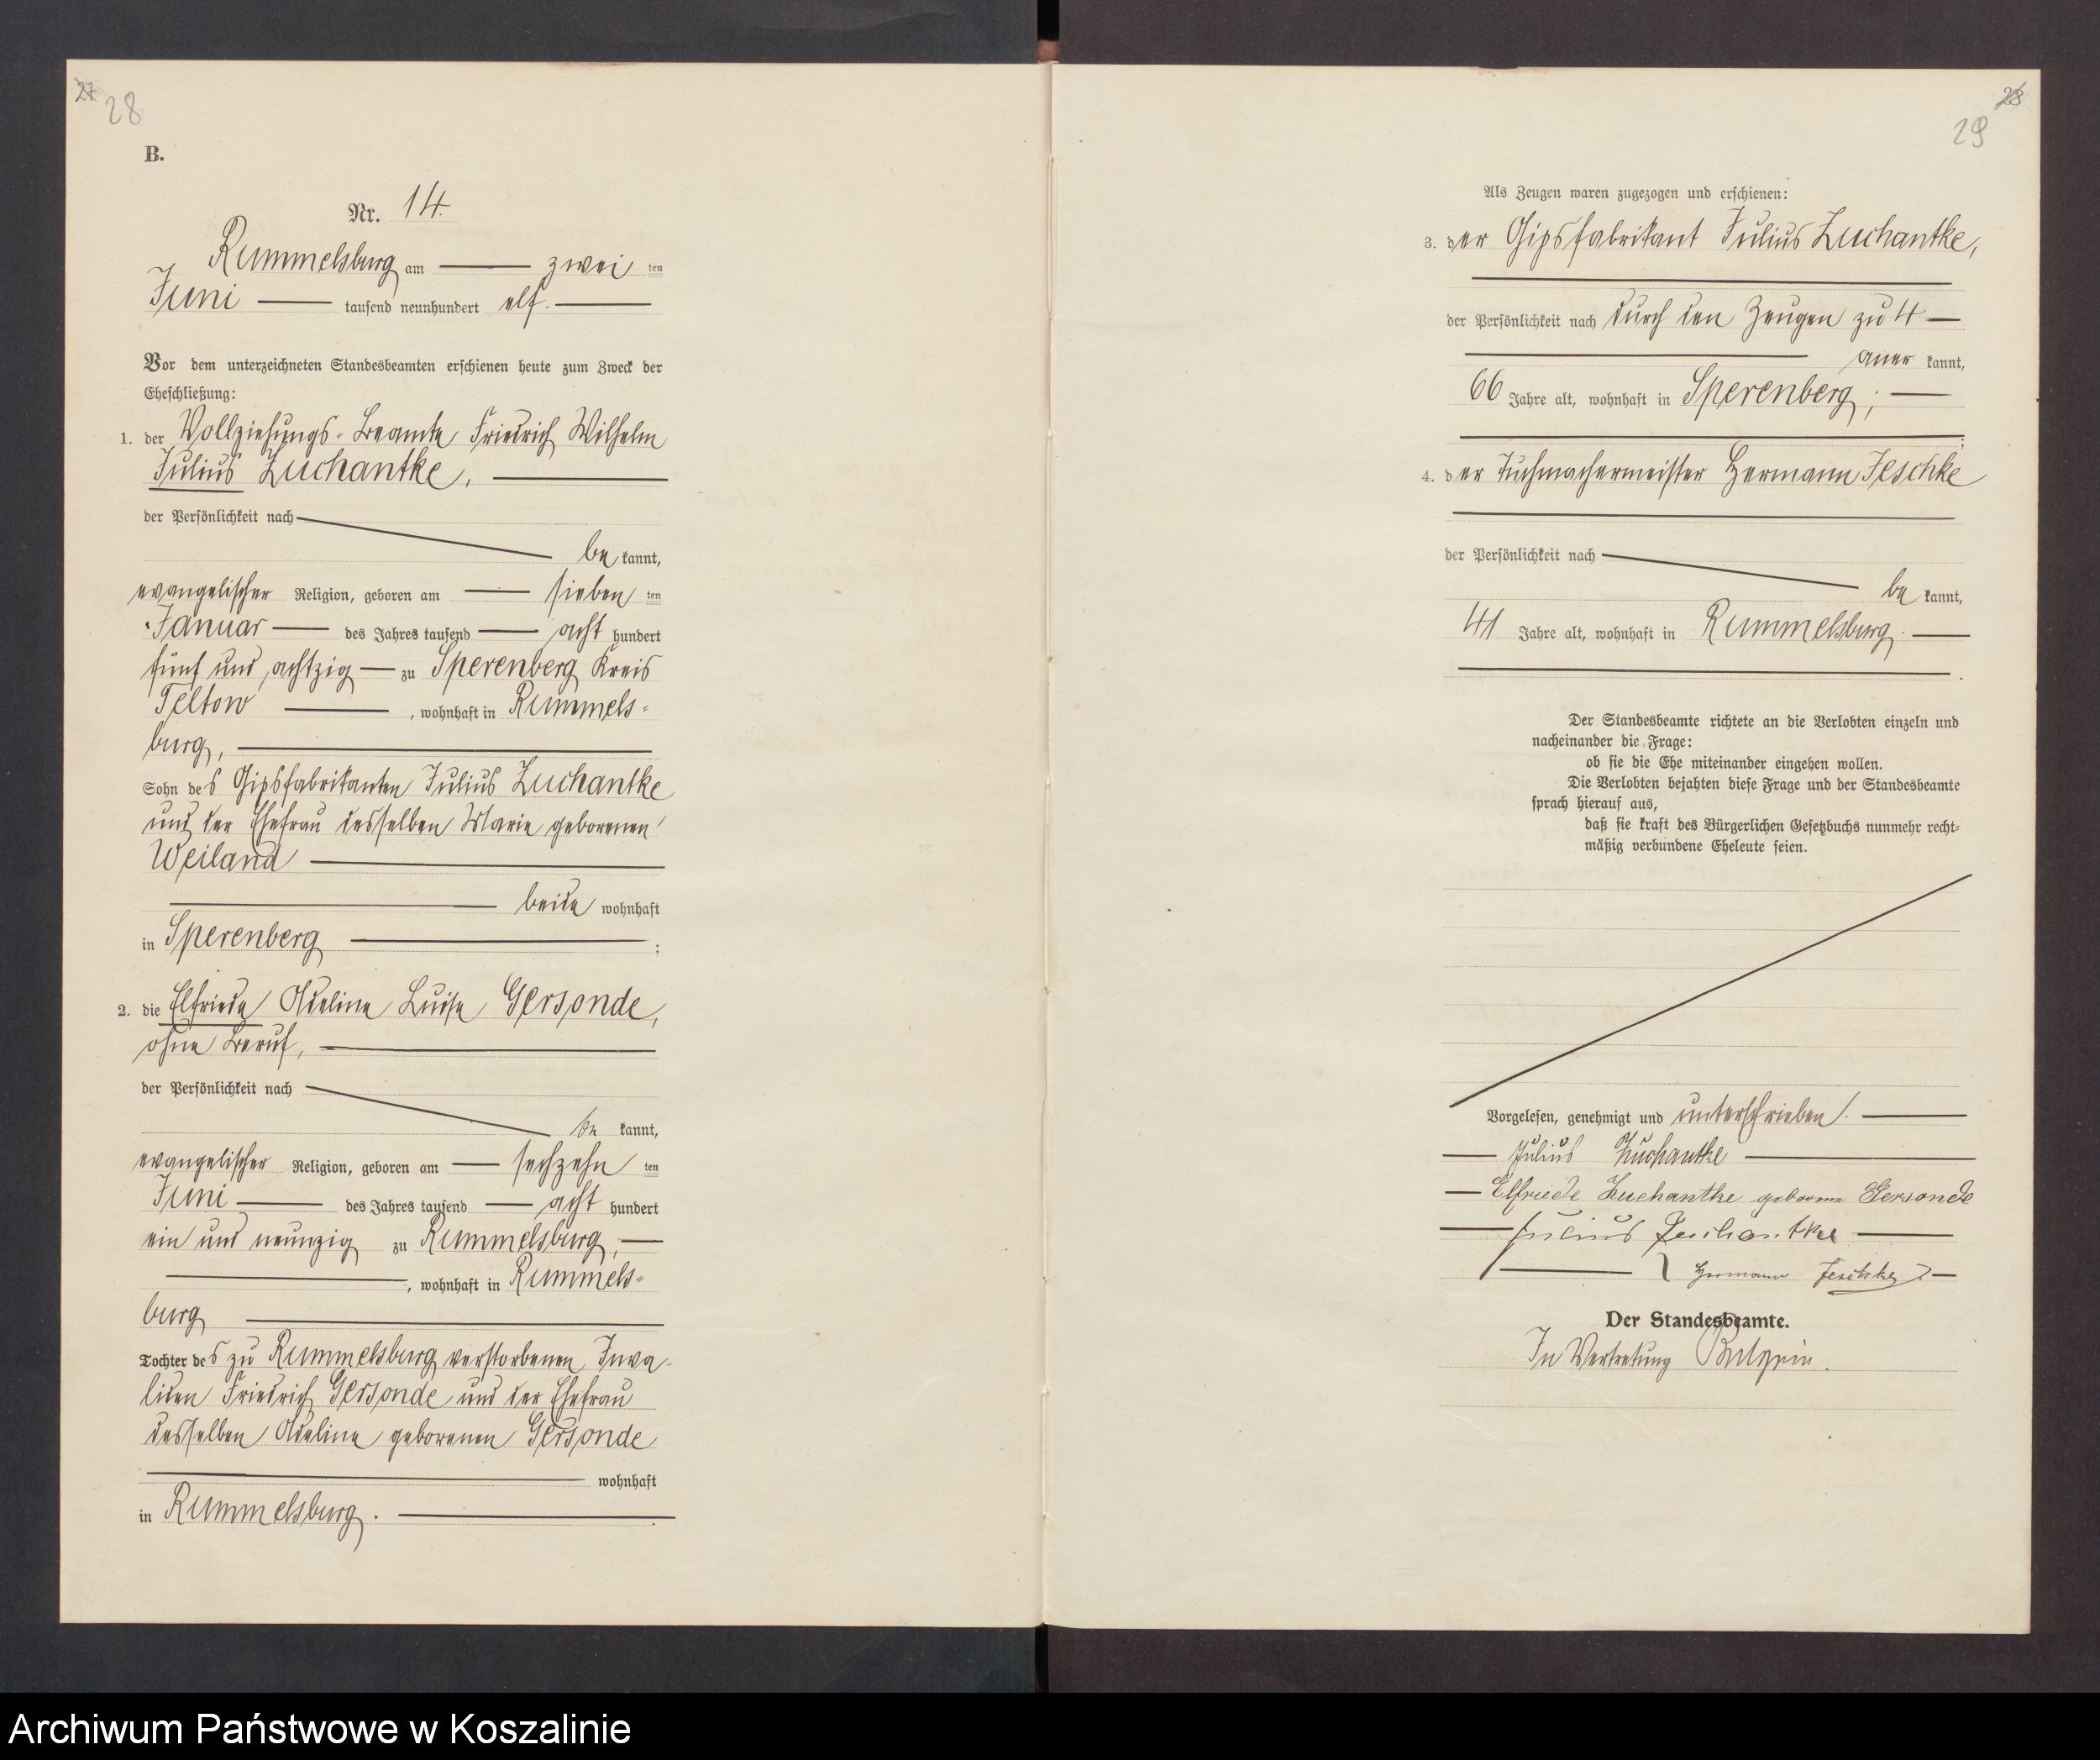 27
28
B.
Nr. 14.
Rummelsburg am zwei ten
Juni tausend neunhundert elf.
Vor dem unterzeichneten Standesbeamten erschienen heute zum Zweck der
Eheschließung:
1. der Vollziehungs-Beamte Friedrich Wilhelm
Julius Zuchantke,
der Persönlichkeit nach
be kannt,
evangelischer Religion, geboren am sieben ten
Januar des Jahres tausend acht hundert
fünf und achtzig zu Sperenberg Kreis
Teltow , wohnhaft in Rummels-
burg,
Sohn des Gipsfabrikanten Julius Zuchantke
und der Ehefrau desselben Marie geborenen
Weiland
beide wohnhaft
in Sperenberg ;
2. die Elfriede Adeline Luise Gersonde,
ohne Beruf,
der Persönlichkeit nach
be kannt,
evangelischer Religion, geboren am sechzehn ten
Juni des Jahres tausend acht hundert
ein und neunzig zu Rummelsburg,
, wohnhaft in Rummels-
burg
Tochter des zu Rummelsburg verstorbenen Inva-
liden Friedrich Gersonde und der Ehefrau
desselben Adeline geborenen Gersonde
wohnhaft
in Rummelsburg.
28
29
Als Zeugen waren zugezogen und erschienen:
3. der Gipsfabrikant Julius Zuchantke,
der Persönlichkeit nach durch den Zeugen zu 4
aner kannt,
66 Jahre alt, wohnhaft in Sperenberg;
4. der Tuchmachermeister Hermann Jeschke
der Persönlichkeit nach
be kannt,
41 Jahre alt, wohnhaft in Rummelsburg.
Der Standesbeamte richtete an die Verlobten einzeln und
nacheinander die Frage:
ob sie die Ehe miteinander eingehen wollen.
Die Verlobten bejahten diese Frage und der Standesbeamte
sprach hierauf aus,
daß sie kraft des Bürgerlichen Gesetzbuchs nunmehr recht-
mäßig verbundene Eheleute seien.
Vorgelesen, genehmigt und unterschrieben.
Julius Zuchantke
Elfriede Zuchantke geborene Gersonde
Julius Zuchantke
Hermann Jeschke
Der Standesbeamte.
In Vertretung
Archiwum Państwowe w Koszalinie